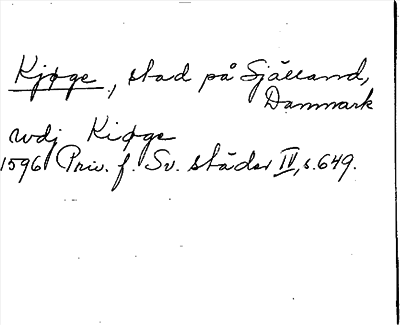 Kjøge, stad på Själland,
Danmark
wdj Kiøge
1596 Priv. f. Sv. städer IV, s. 649.